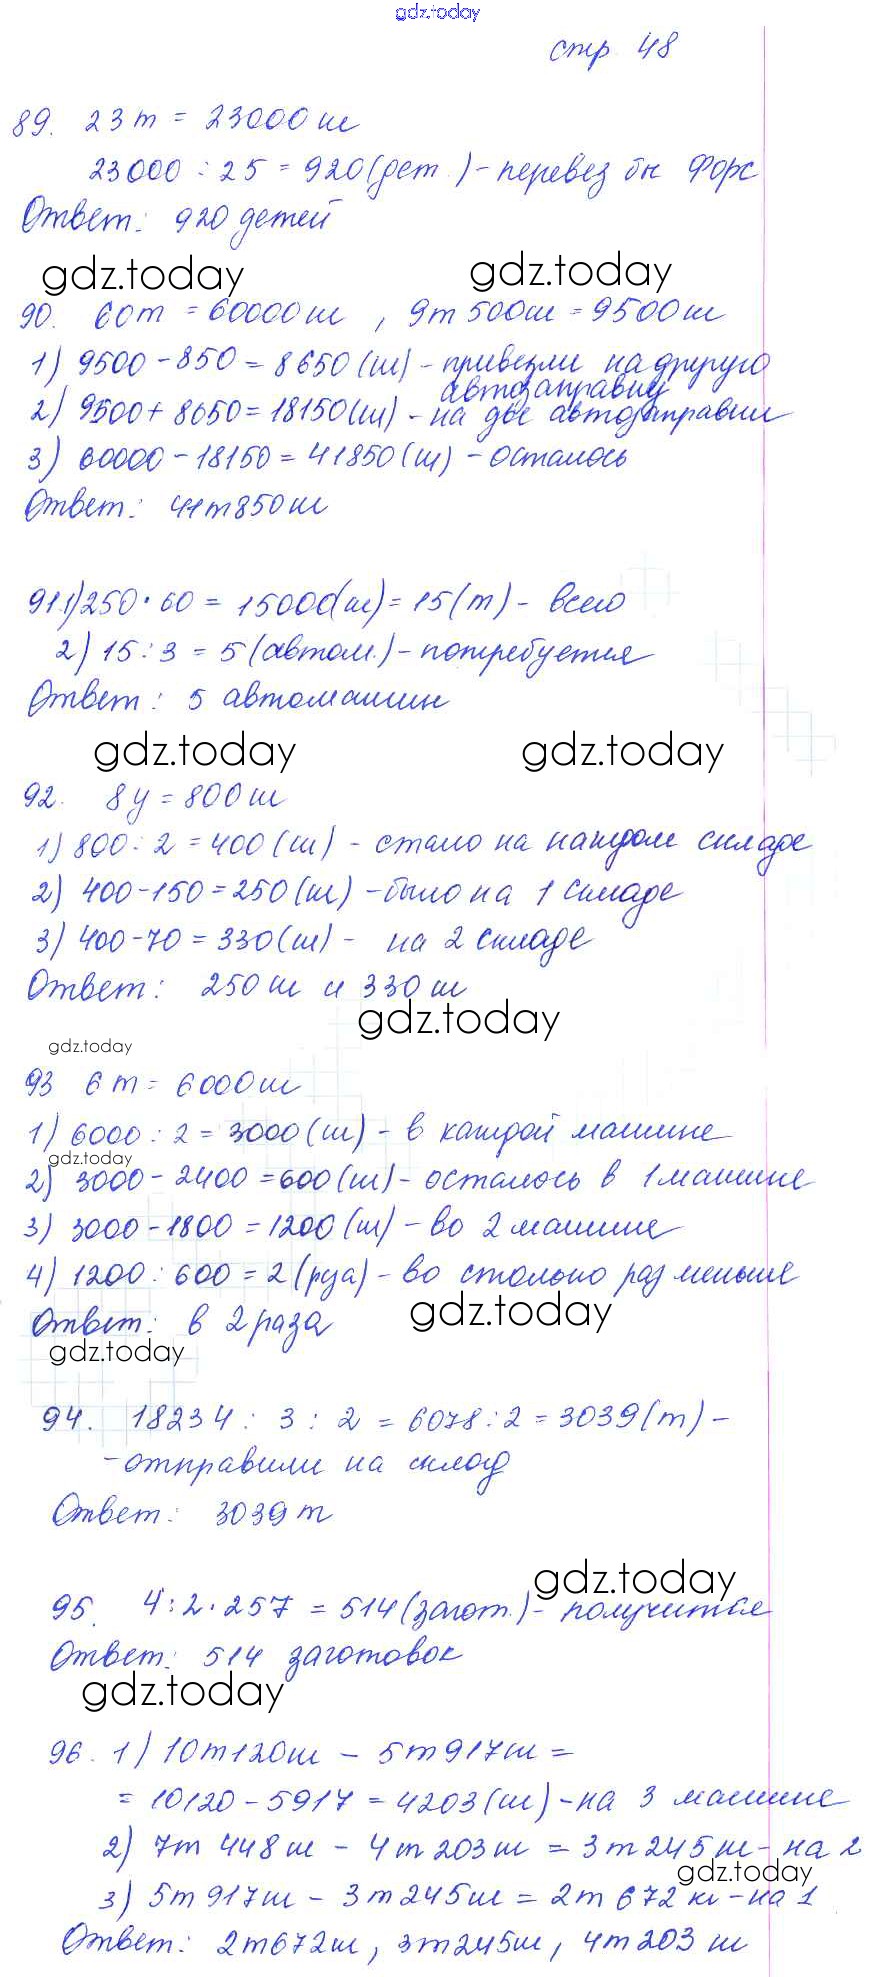 gdz.today
стр 48
89. 23т = 23000кг
23000 : 25 = 920(дет.) - перевез бы Форс
Ответ: 920 детей
gdz.today gdz.today
90. 60т = 60000кг, 9т 500кг = 9500кг
1) 9500 - 850 = 8650(кг) - привезли на другую
автозаправку
2) 9500 + 8650 = 18150(кг) - на две автозаправки
3) 60000 - 18150 = 41850(кг) - осталось
Ответ: 41т 850кг
91. 1) 250 · 60 = 15000(кг) = 15(т) - всего
2) 15 : 3 = 5 (автом.) - потребуется
Ответ: 5 автомашин
gdz.today gdz.today
92. 8ц = 800кг
1) 800 : 2 = 400 (кг) - стало на каждом складе
2) 400 - 150 = 250(кг) - было на 1 складе
3) 400 - 70 = 330(кг) - на 2 складе
Ответ: 250кг и 330кг
gdz.today
gdz.today
93 6т = 6000кг
1) 6000 : 2 = 3000(кг) - в каждой машине
gdz.today
2) 3000 - 2400 = 600(кг) - осталось в 1 машине
3) 3000 - 1800 = 1200(кг) - во 2 машине
4) 1200 : 600 = 2(руа) - во столько раз меньше
gdz.today
Ответ: в 2 раза
gdz.today
94. 18234 : 3 : 2 = 6078 : 2 = 3039(т) -
- отправили на склад
Ответ: 3039т
gdz.today
95. 4 : 2 · 257 = 514(загот.) - получится
Ответ: 514 заготовок
gdz.today
96. 1) 10т120кг - 5т917кг =
= 10120 - 5917 = 4203(кг) - на 3 машине
2) 7т 448кг - 4т 203кг = 3т245кг - на 2
gdz.today
3) 5т917кг - 3т245кг = 2т672кг - на 1
Ответ: 2т672кг, 3т245кг, 4т203кг